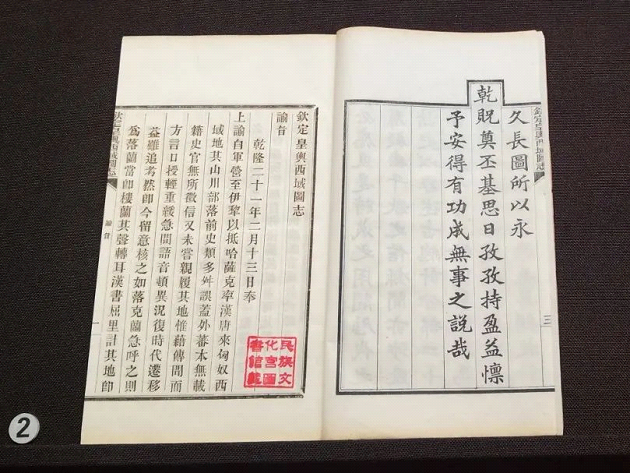 欽定皇輿西域圖志
三
久長圖所以永
乾貺奠丕基思日孜孜持盈益懍
予安得有功成無事之說哉
欽定皇輿西域圖志
諭旨
乾隆二十一年二月十三日奉
上諭自軍營至伊犂以抵哈薩克率漢唐來匈奴西
域地其山川部落前史類多舛誤蓋外蕃本無載
籍史官無所徵信又未嘗親履其地惟藉傳聞而
方言口授輕重緩急間語音頓異況復時代遷移
益難追考然即今留意核之如落克蘭急呼之則
爲落蘭當即樓蘭其聲轉耳漢書屈里計其地即
民族文
化宮圖
書館藏
諭旨
一
2